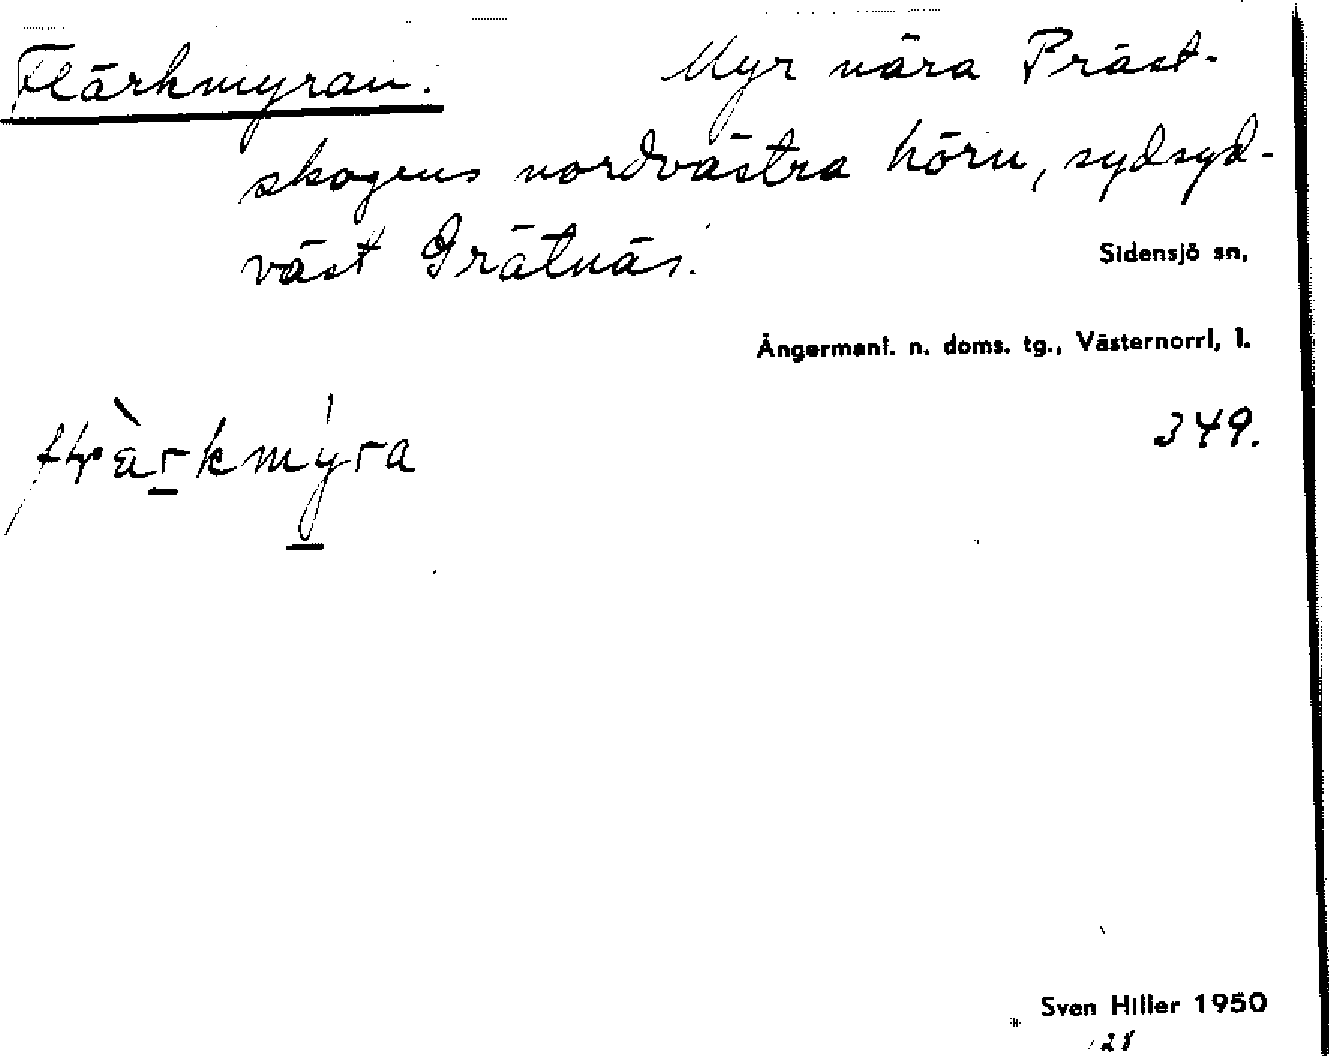 Flärkmyran. Myr nära Präst-
skogens nordvästra hörn, sydsyd-
väst Grätnäs.
Sidensjö sn,
Ångermanl. n. doms. tg., Västernorrl, l.
349.
Sven Hiller 1950
28